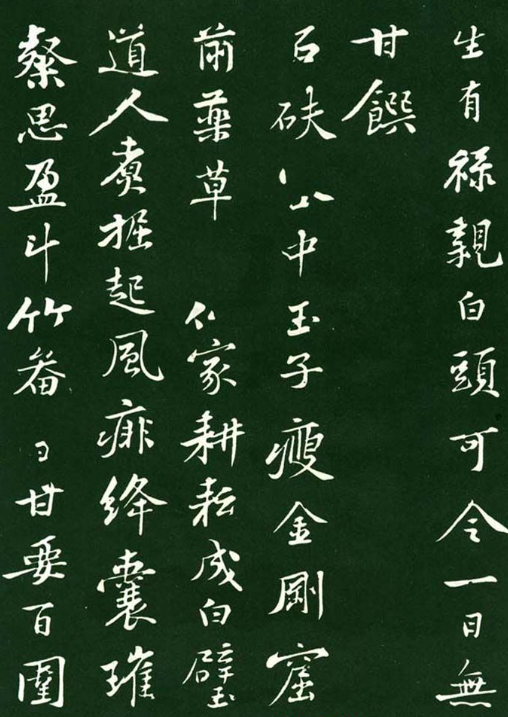 生有祿親白頭可令一日無
甘饌
石砆中玉子瘦金剛窟
前藥草家耕耘成白璧
道人煮掘起風痱絳囊璀
粲思盈斗竹畚甘要百圍